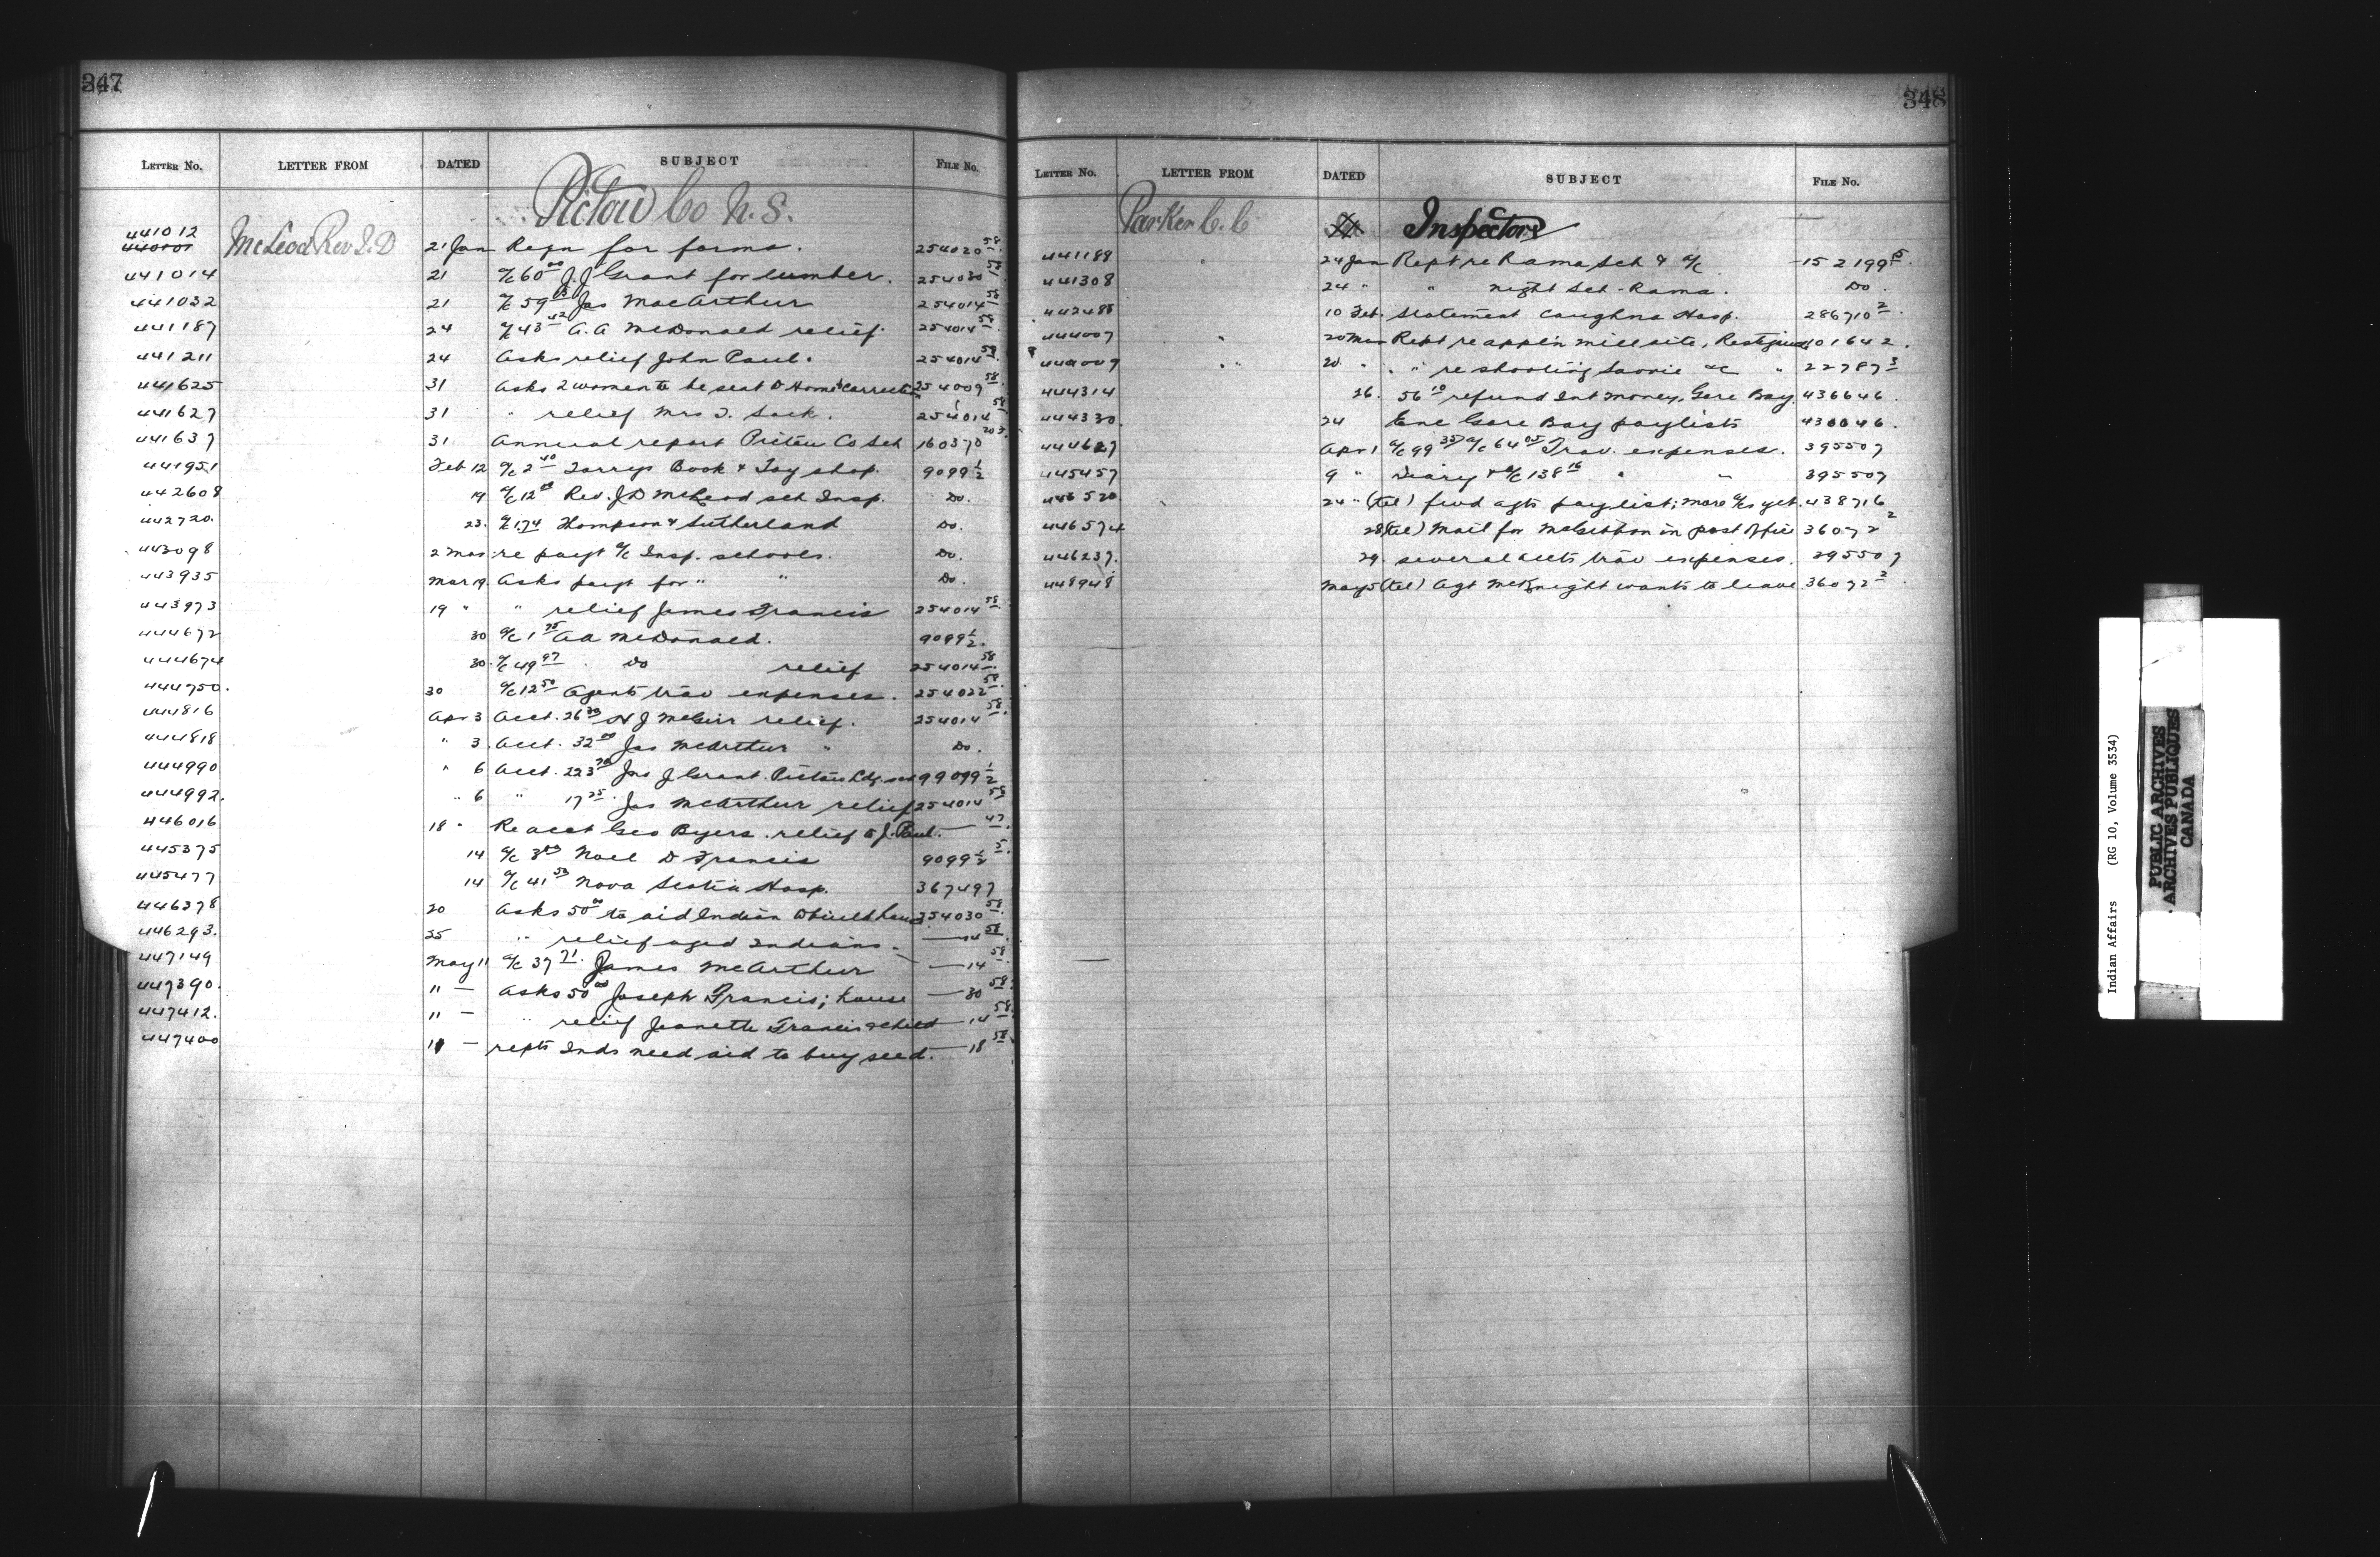 347
LETTER NO. LETTER FROM DATED SUBJECT FILE NO.
Pictou Co N.S.
441012 McLeod Rev J.D 21 Jan Reqn for forms. 254020 58
441014 21 a/c 60 00 J J Grant for lumber. 254030 58
441032 21 a/c 59 Jas MacArthur 254014 58
441187 24 a/c 43 42 A.A McDonald relief. 254014 58
441211 24 Asks relief John Paul. 254014 58
441625 31 Asks 2 women to be sent to Home correction 254009 58
441627 31 " relief Mrs T. Sack. 254014 58
441637 31 Annual report Pictou Co Sch 160370 203
441951 Feb 12 a/c 2 40 Torreys Book & Toy shop. 9099 1/2
442608 19 a/c 12 Rev. J D McLeod sch Insp. Do.
442720. 23. a/c 1.74 Thompson & Sutherland Do.
443098 2 Mar re payt a/c Insp. schools. Do.
443935 Mar 19 Asks payt for " " Do.
443973 19 " " relief James Francis 254014 58
444672 30 a/c 1 75 A A McDonald. 9099 1/2.
444674 30. a/c 49 97 Do relief 254014 58
444750. 30 a/c 12 50 Agents trav expenses. 254022 58
444816 Apr 3 Acct. 26 30 H J McGirr relief. 254014 58.
444818 " 3. Acct. 32 00 Jas McArthur " Do.
444990 " 6 Acct. 223 Jno J Grant. Pictou Ldg. 99099 1/2
444992. " 6 " 17 25 Jas McArthur relief 254014 58
446016 18 " Re acct Geo Byers. relief to J. Paul. — 47
445375 14 a/c 3 00 Noel D Francis 9099 1/2 5.
445477 14 a/c 41 Nova Scotia Hosp. 367497
446378 20 Asks 50 00 to aid Indian to build house 254030 58.
446293. 25 " relief aged Indians. — 14 58
447149 May 11 a/c 37 71. James McArthur — 14 58
447390. 11 — Asks 50 00 Joseph Francis; house — 30 58.
447412. 11 — " relief Jeanette Francis & child — 14 58
447400 11 — repts Inds need aid to buy seed. — 18 58
348
LETTER NO. LETTER FROM DATED SUBJECT FILE NO.
Parker C.C Inspectors
441189 " 24 Jan Rept re Rama Sch & a/c 152199 5.
441308 24 " " night Sch - Rama. Do.
442485 10 Feb. Statement Caughna Hosp. 286710 2.
444007 " 20 Mar Rept re appl'n mill site, Restigouche 101642.
444009 " " 20 " " " re shooting " 22787 3
444314 26. 56 10 refund Int money, Gore Bay. 436646.
444330. 24 Enc Gore Bay paylists 430046.
444627 Apr 1 a/c 99 35 a/c 64 05 Trav. expenses. 395507
445457 9 " Diary & a/c 138 16 " " 395507
446520 24 " (tel) fwd agts paylist; more a/cs yet. 438716
446574 28 (tel) Mail for McGibbon in post office 36072 2
446237. 29. several accts trav expenses. 395507
448948 May 5 (tel) Agt McKnight wants to leave. 36072 2
Indian Affairs (RG 10, Volume 3534)
PUBLIC ARCHIVES
ARCHIVES PUBLIQUES
CANADA